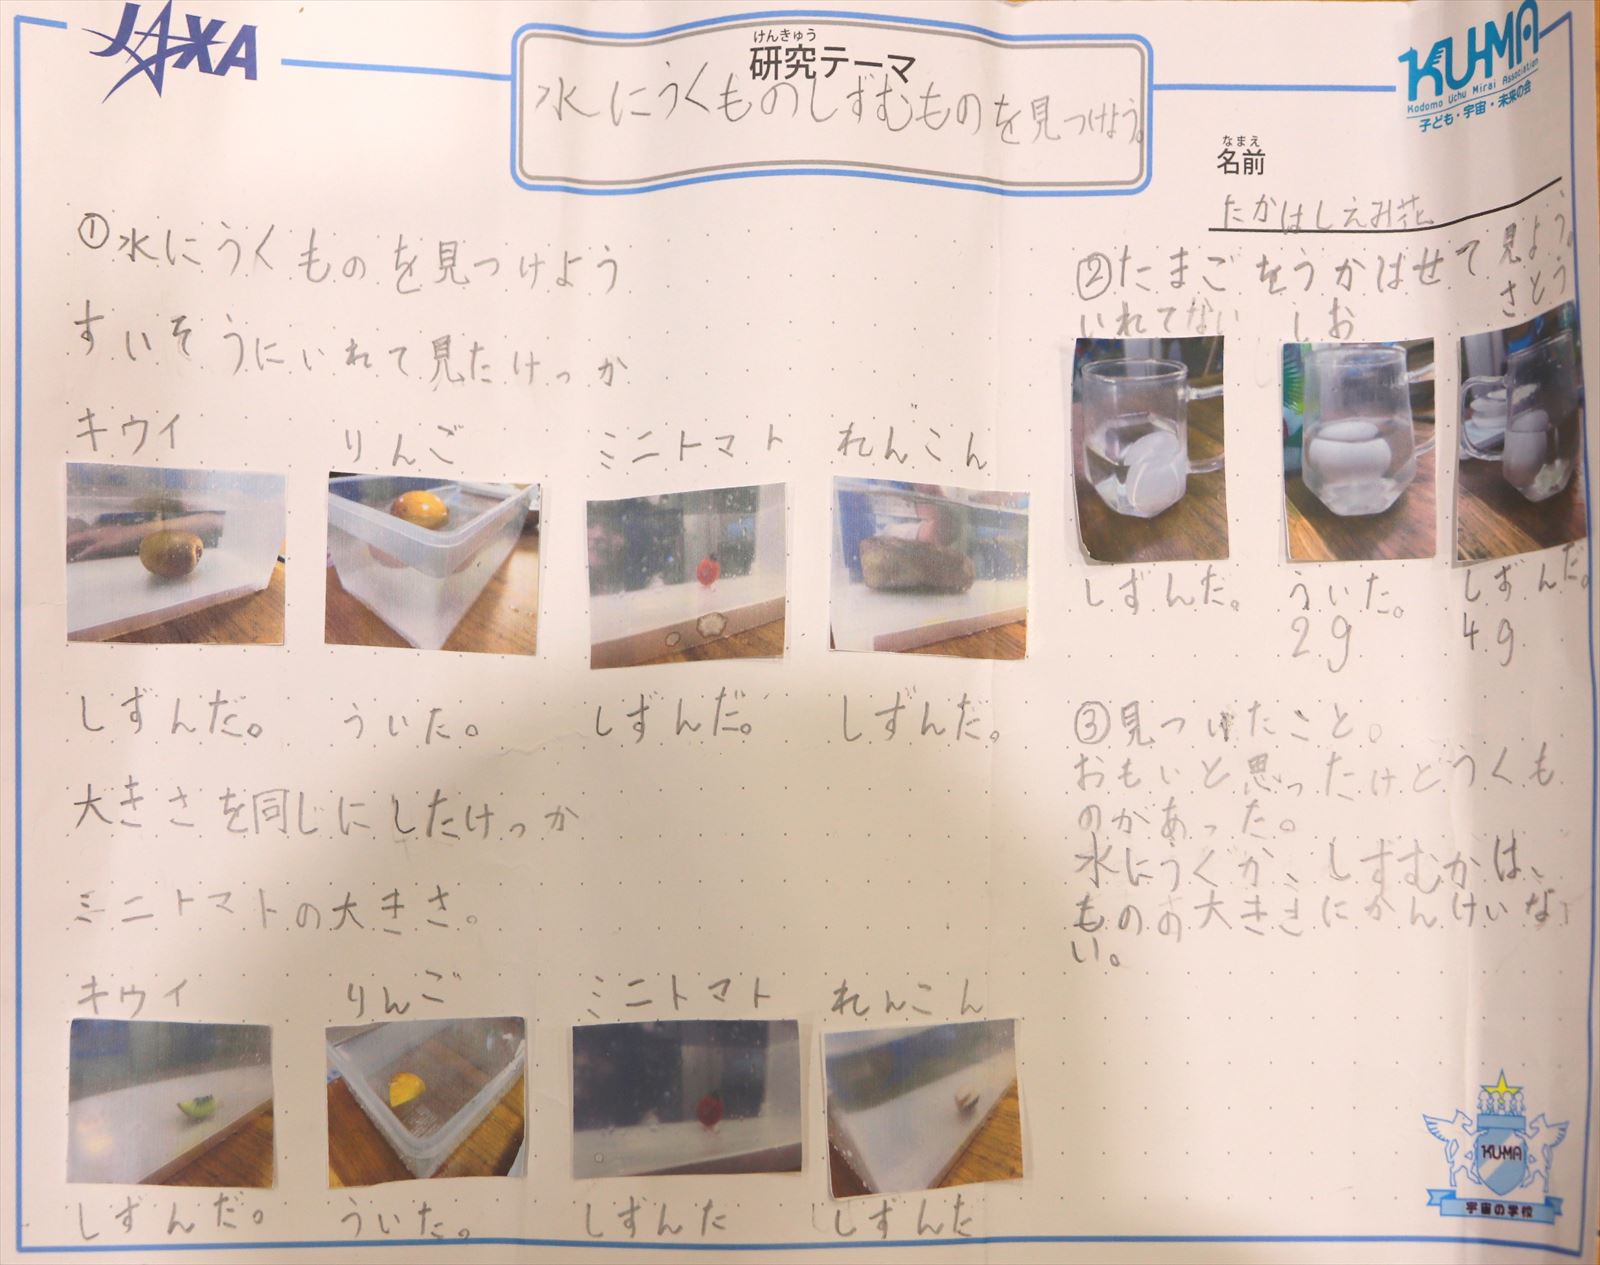 JAXA
けんきゅう
研究テーマ
水にうくものしずむものを見つけよう。
KU-MA
Kodomo Uchu Mirai Association
子ども・宇宙・未来の会
なまえ
名前
たかはしえみ花
①水にうくものを見つけよう
すいそうにいれて見たけっか
キウイ りんご ミニトマト れんこん
しずんだ。 ういた。 しずんだ。 しずんだ。
大きさを同じにしたけっか
ミニトマトの大きさ。
キウイ りんご ミニトマト れんこん
しずんだ。 ういた。 しずんた しずんた
②たまごをうかばせて見よう。
いれてない しお さとう
しずんた。 ういた。 しずんだ。
2g 4g
③見つけたこと。
おもいと思ったけどうくも
のがあった。
水にうくか、しずむかは、
ものの大きさにかんけいな
い。
KU-MA
宇宙の学校